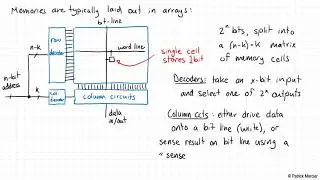 Memories are typically laid out in arrays:
bit-line
row
decoder
n-k
word line
single cell
stores 1 bit
n-bit
address
k
col.
decoder
column circuits
data
in/out
2ⁿ bits, split into
a (n-k)-k matrix
of memory cells
Decoders: take an x-bit input
and select one of 2ˣ outputs
Column ccts: either drive data
onto a bit line (write), or
sense result on bit line using a
"sense
© Patrick Mercier